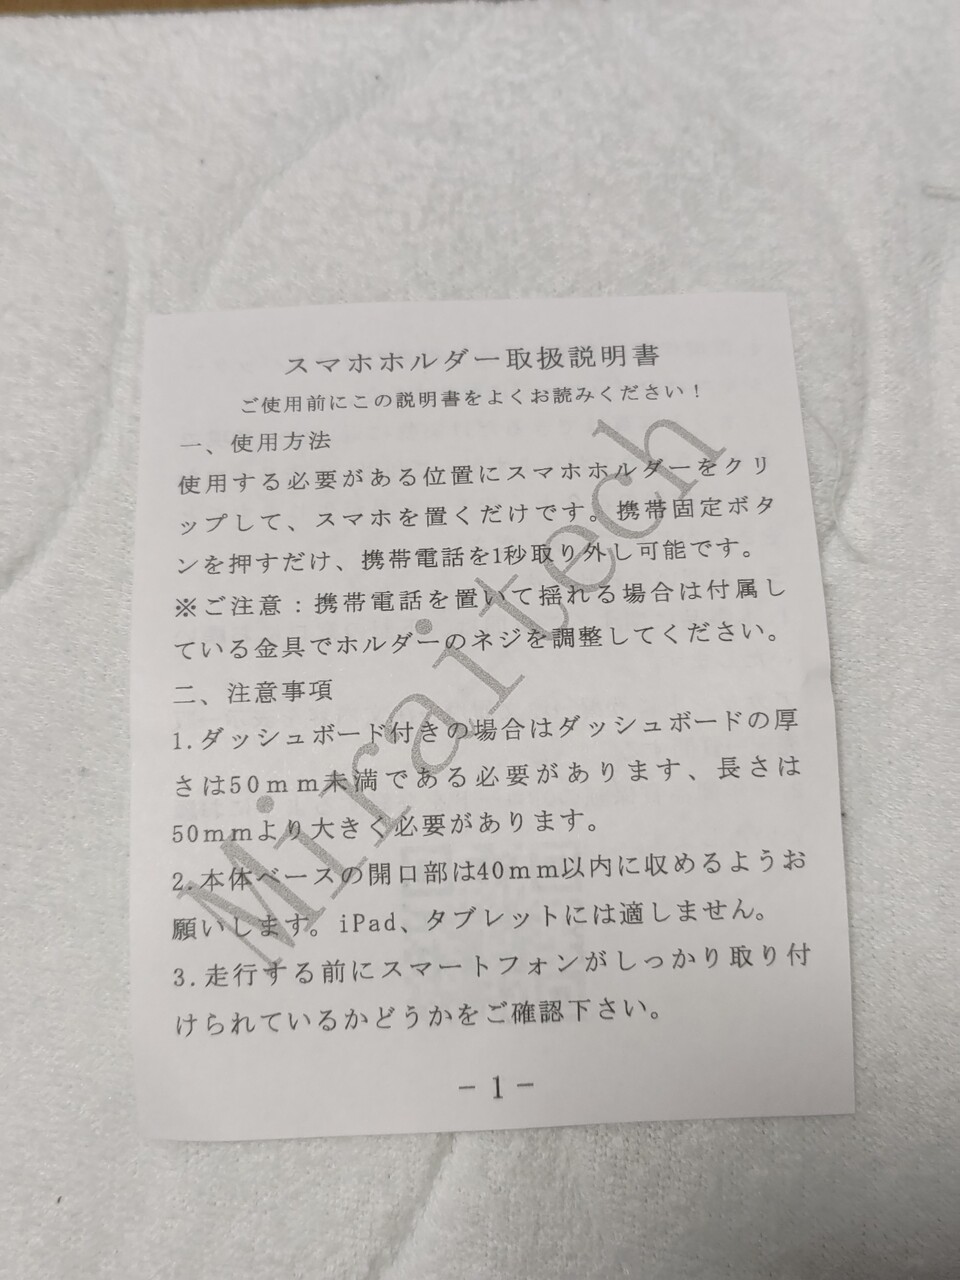 スマホホルダー取扱説明書
ご使用前にこの説明書をよくお読みください！
一、使用方法
使用する必要がある位置にスマホホルダーをクリ
ップして、スマホを置くだけです。携帯固定ボタ
ンを押すだけ、携帯電話を1秒取り外し可能です。
※ご注意：携帯電話を置いて揺れる場合は付属し
ている金具でホルダーのネジを調整してください。
二、注意事項
1.ダッシュボード付きの場合はダッシュボードの厚
さは50mm未満である必要があります、長さは
50mmより大きく必要があります。
2.本体ベースの開口部は40mm以内に収めるようお
願いします。iPad、タブレットには適しません。
3.走行する前にスマートフォンがしっかり取り付
けられているかどうかをご確認下さい。
－1－
Mirai tech